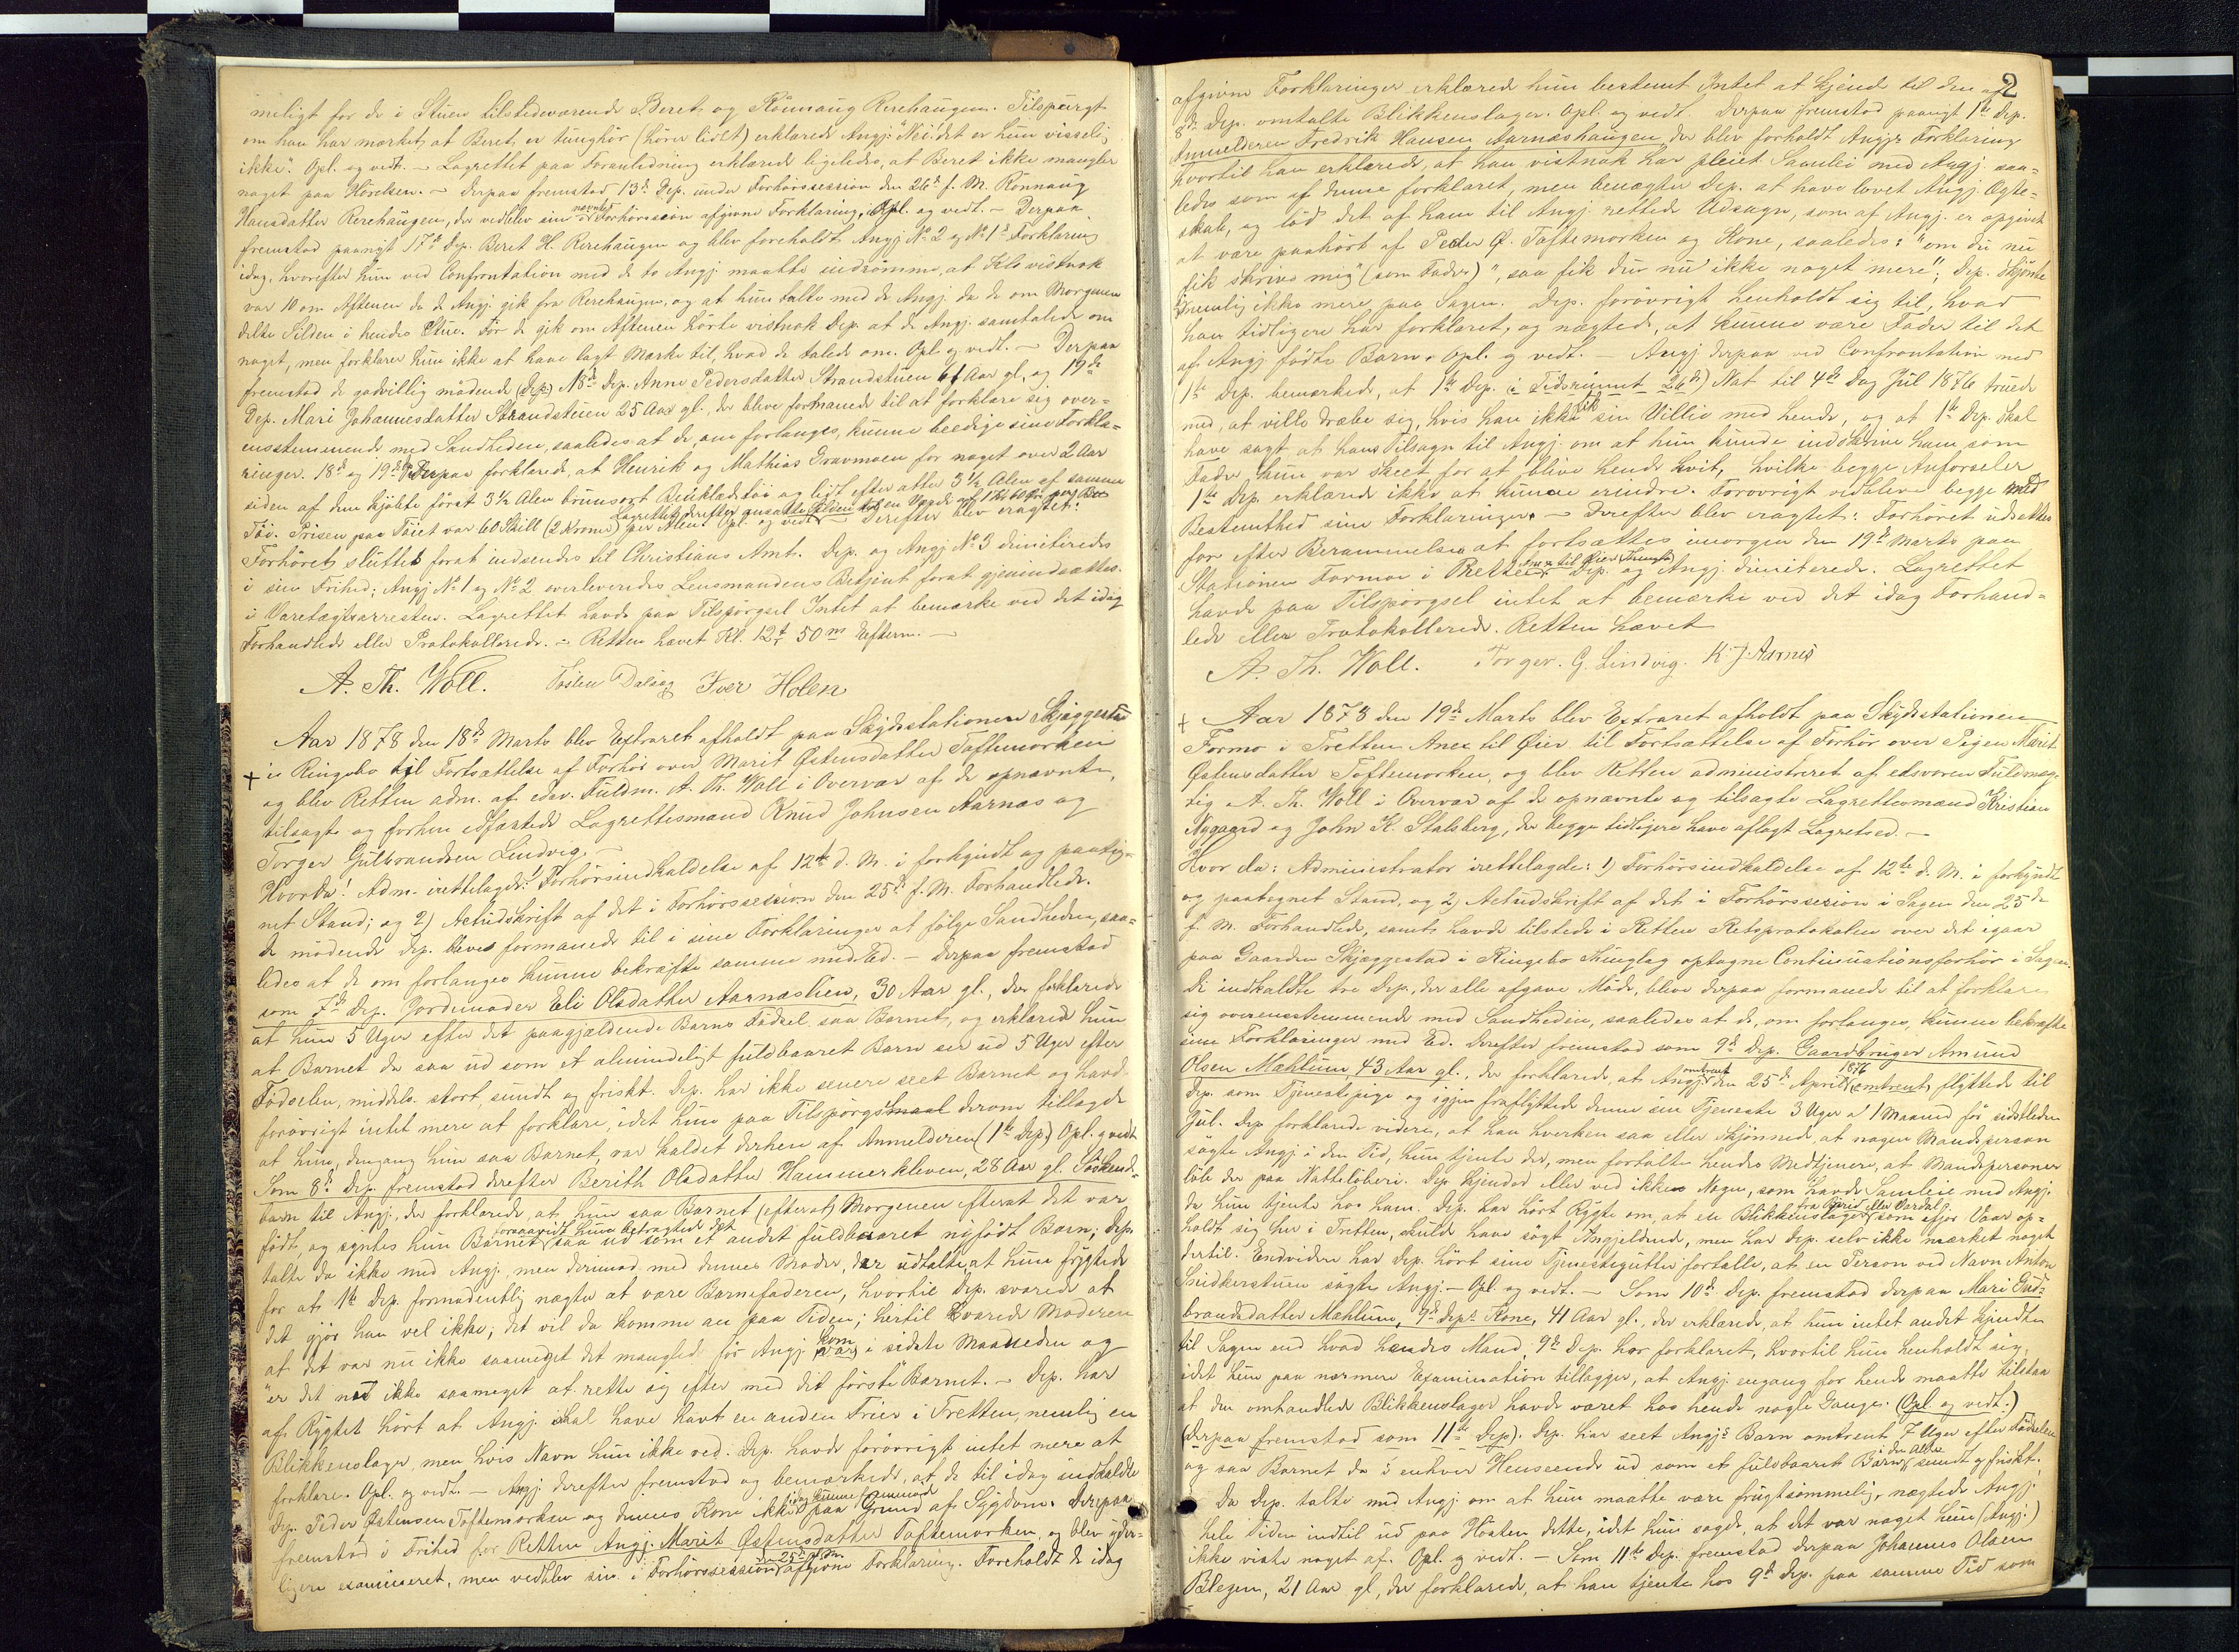 meligt for de i Stuen tilstedeværende Beret og Rönnaug Rerehaugen. Tilspurgt
om han har mærket at Beret er tunghör (hörer lidt) erklærede Angj: "Nei det er hun visselig
ikke". Opl. og vedt. - Lagrettet paa Foranledning erklærede ligeledes, at Beret ikke mangler
noget paa Hörelsen. - Derpaa fremstod 13de Dep. under Forhörssession den 26de f. M. Rönnaug
Hansdatter Rerehaugen, der vedblev sin i nævnte Forhörssession afgivne Forklaring. Opl. og vedt. - Derpaa
fremstod paanyt 17de Dep. Beret H. Rerehaugen og blev foreholdt Angj No 2 og No 1s Forklaring
idag, hvorefter hun ved Confrontation med de to Angj. maatte indrömme, at Kl. vistnok
var 10 om Aftenen da de Angj. gik fra Rerehaugen, og at hun talte med de Angj. da de om Morgenen
delte Silden i hendes Stue. För de gik om Aftenen hörte vistnok Dep. at de Angj. samtalede om
noget, men forklarer hun ikke at have lagt Mærke til, hvad de talede om. Opl. og vedt. - Derpaa
fremstod de godvillig mödende (Dep.) 18de Dep. Anne Pedersdatter Strandstuen 61 Aar gl, og 19de
Dep. Mari Johannesdatter Strandstuen 25 Aar gl., der bleve formanede til at forklare sig over=
ensstemmende med Sandheden, saaledes at de, om forlanges, kunne beedige sine Forkla=
ringer. 18de og 19de Dep. Derpaa forklarede, at Henrik og Mathias Gravmoen for noget over 2 Aar
siden af dem kjöbte först 3½ Alen brunsort Buxklædetöi og lidt efter atter 3½ Alen af samme
Töi. Prisen paa Töiet var 60 Skill (2 Kroner) per Alen. Opl. og vedt. Lagrettet derefter ansatte Silden til en Værdi af 1 Kr 60 Öre. Derefter blev eragtet:
Forhöret sluttet forat indsendes til Christians Amt. Dep. og Angj No 3 dimiteredes
i sin Frihed; Angj No 1 og No 2 overleveredes Lensmandens Betjent forat gjenindsættes
i Varetægtsarresten. Lagrettet havde paa Tilspörgsel Intet at bemærke ved det idag
Forhandlede eller Protokollerede. - Retten hævet Kl. 12t 50m Efterm. -
A. Th. Woll. Iver Holen
Aar 1878 den 18de Marts blev Extraret afholdt paa Skydsstationen Skjæggestad
+ i Ringebo til Fortsættelse af Forhör over Marit Østensdatter Toftemorken
og blev Retten adm. af edsv. Fuldm. A. Th. Woll i Overvær af de opnævnte,
tilsagte og forhen edfæstede Lagrettesmænd Knud Johnsen Aarnæs og
Torger Gulbrandsen Lindvig. -
Hvorda! Adm. irettelagde: 1) Forhörsindkaldelse af 12te d. M. i forkyndt og paateg=
net Stand; og 2) Actudskrift af det i Forhörssession den 25de f. M. Forhandlede.
De mödende Dep. bleves formanede til i sine Forklaringer at fölge Sandheden, saa=
ledes at de om forlanges kunne bekræfte samme med Ed. - Derpaa fremstod
som 7de Dep. Jordemoder Eli Olsdatter Aarnæslien, 30 Aar gl., der forklarede
at hun 5 Uger efter det paagjældende Barns Födsel saa Barnet, og erklærede hun
at Barnet da saa ud som et almindeligt fuldbaaret Barn ser ud 5 Uger efter
Födselen, middels stort, sundt og friskt. Dep. har ikke senere seet Barnet og havde
forövrigt intet mere at forklare, idet hun paa Tilspörgsmaal derom tillagde
at hun, dengang hun saa Barnet, var kaldet derhen af Anmelderen (1ste Dep.) Opl. og vedt
Som 8de Dep. fremstod derefter Berith Olsdatter Hammerkleven, 28 Aar gl. Södskend=
barn til Angj., der forklarede, at hun saa Barnet (efterat) Morgenen efterat det var
födt, og syntes hun Barnet, forsaavidt hun betragtede det, saa ud som et andet fuldbaaret nyfödt Barn; Dep.
talte da ikke med Angj. men derimod med dennes Moder, der udtalte, at hun frygtede
for at 1ste Dep. formodentlig nægter at være Barnefaderen, hvortil Dep. svarede at
det gjör han vel ikke; det vil da komme an paa Tiden; hertil svarede Moderen
at det var nu ikke saameget det manglede för Angj. (var) kom i sidste Maaneden og
"er det nat ikke saameget at rette sig efter med det förste" Barnet. - Dep. har
af Rygtet hört at Angj. skal have havt en anden Frier i Tretten, nemlig en
Blikkenslager, men hvis Navn hun ikke ved. Dep. havde forövrigt intet mere at
forklare. Opl. og vedt. - Angj. derefter fremstod og bemærkede, at de til idag indkaldte
Dep. Peder Østensen Toftemorken og dennes Kone ikke idag kunne fremmöde paa Grund af Sygdom. Derpaa
fremstod i Frihed for Retten Angj. Marit Østensdatter Toftemorken, og blev yder=
ligere examineret, men vedblev sin i Forhörssession den 25de f. M. afgivne Forklaring. Foreholdt de idag
2
afgivne Forklaringer erklærede hun bestemt Intet at kjende til den af
8de Dep. omtalte Blikkenslager. Opl. og vedt. Derpaa fremstod paanyt 1ste Dep.
Anmelderen Fredrik Hansen Aarnæshaugen, der blev forholdt Angj.s Forklaring
hvortil han erklærede, at han vistnok har pleiet Samleie med Angj. saa=
ledes som af denne forklaret, men benægter Dep. at have lovet Angj. Ægte=
skab, og löd det af ham til Angj. rettede Udsagn, som af Angj. er opgivet
at være paahört af Peder Ø. Toftemorken og Kone, saaledes: "om du nu
fik skrive mig" (som Fader) ", saa fik du nu ikke noget mere"; Dep. skjönte
nemlig ikke mere paa Sagen. Dep. forövrigt henholdt sig til, hvad
han tidligere har forklaret, og nægtede, at kunne være Fader til det
af Angj. födte Barn. Opl. og vedt. - Angj. derpaa ved Confrontation med
1ste Dep. bemærkede, at 1ste Dep. (i Tidsrummet 26de) Nat til 4de Dag Jul 1876 truede
med, at ville dræbe sig, hvis han ikke fik sin Villie med hende, og at 1ste Dep. skal
have sagt at hans Tilsagn til Angj. om at hun kunde indskrive ham som
Fader kun var skeet for at blive hende kvit, hvilke begge Anförseler
1ste Dep. erklærede ikke at kunne erindre. Forövrigt vedbleve begge med
Bestemthed sine Forklaringer. - Derefter blev eragtet: Forhöret udsættes
for efter Berammelsen at fortsættes imorgen den 19de Marts paa
Stationen Formo i Tretten Anex til Øier Thinglag. Dep. og Angj. dimiterede. Lagrettet
havde paa Tilspörgsel intet at bemærke ved det idag Forhand=
lede eller Protokollerede. Retten hævet
A. Th. Woll. Torger. G. Lindvig. K J. Aarnes
+ Aar 1878 den 19de Marts blev Extraret afholdt paa Skydsstationen
Formo i Tretten Anex til Øier til Fortsættelse af Forhör over Pigen Marit
Østensdatter Toftemorken, og blev Retten administreret af edsvoren Fuldmæg=
tig A. Th. Woll i Overvær af de opnævnte og tilsagte Lagrettesmænd Kristian
Nygaard og John K. Stalsberg, der begge tidligere have aflagt Lagretsed. -
Hvor da: Administrator irettelagde: 1) Forhörsindkaldelse af 12te d. M. i forkyndt
og paategnet Stand, og 2) Actudskrift af det i Forhörssession i Sagen den 25de
f. M. Forhandlede, samt havde tilstede i Retten Retsprotokolen over det igaar
paa Gaarden Skjæggestad i Ringebo Thinglag optagne Continuationsforhör i Sagen.
De indkaldte tre Dep., der alle afgave Möde, bleve derpaa formanede til at forklare
sig overensstemmende med Sandheden, saaledes at de, om forlanges, kunne bekræfte
sine Forklaringer med Ed. Derefter fremstod som 9de Dep. Gaardbruger Amund
Olsen Mæhlum, 43 Aar gl., der forklarede, at Angj. omtrent den 25de April 1876 (omtrent) flyttede til
Dep. som Tjenestepige og igjen fraflyttede denne sin Tjeneste 3 Uger a 1 Maaned för sidstleden
Jul. Dep. forklarede videre, at han hverken saa eller skjönnede, at nogen Mandsperson
sögte Angj. i den Tid, hun tjente der, men fortalte hendes Medtjenere, at Mandspersoner
löb der paa Natteløberi. Dep. kjendte eller ved ikke Nogen, som havde Samleie med Angj.
da hun tjente hos ham. Dep. har hört Rygte om, at en Blikkenslager fra Birid eller Vardal, som ifjor Vaar op=
holdt sig her i Tretten, skulde have sögt Angjeldende, men har Dep. selv ikke mærket noget
dertil. Endvidere har Dep. hört sine Tjenestegutter fortælle, at en Person ved Navn Anton
Snidkerstuen sögte Angj. - Opl. og vedt. - Som 10de Dep. fremstod derpaa Mari Gud=
brandsdatter Mæhlum, 9de Dep.s Kone, 41 Aar gl., der erklærede, at hun intet andet kjendte
til Sagen end hvad hendes Mand, 9de Dep. har forklaret, hvortil hun henholdt sig,
idet hun paa nærmere Examination tillægger, at Angj. engang for hende maatte tilstaa
at den omhandlede Blikkenslager havde været hos hende nogle Gange. (Opl. og vedt.)
(Derpaa fremstod som 11te Dep). Dep. har seet Angj.s Barn omtrent 7 Uger efter Födselen
og saa Barnet da i enhver Henseende ud som et fuldbaaret Barn i den Alder, sundt og friskt.
Da Dep. talte med Angj. om at hun maatte være frugtsommelig, nægtede Angj.
hele Tiden indtil ud paa Hösten dette, idet hun sagde, at det var noget hun (Angj.)
ikke viste noget af. Opl. og vedt. - Som 11te Dep. fremstod derpaa Johannes Olsen
Blegen, 21 Aar gl, der forklarede, at han tjente hos 9de Dep. paa samme Tid som